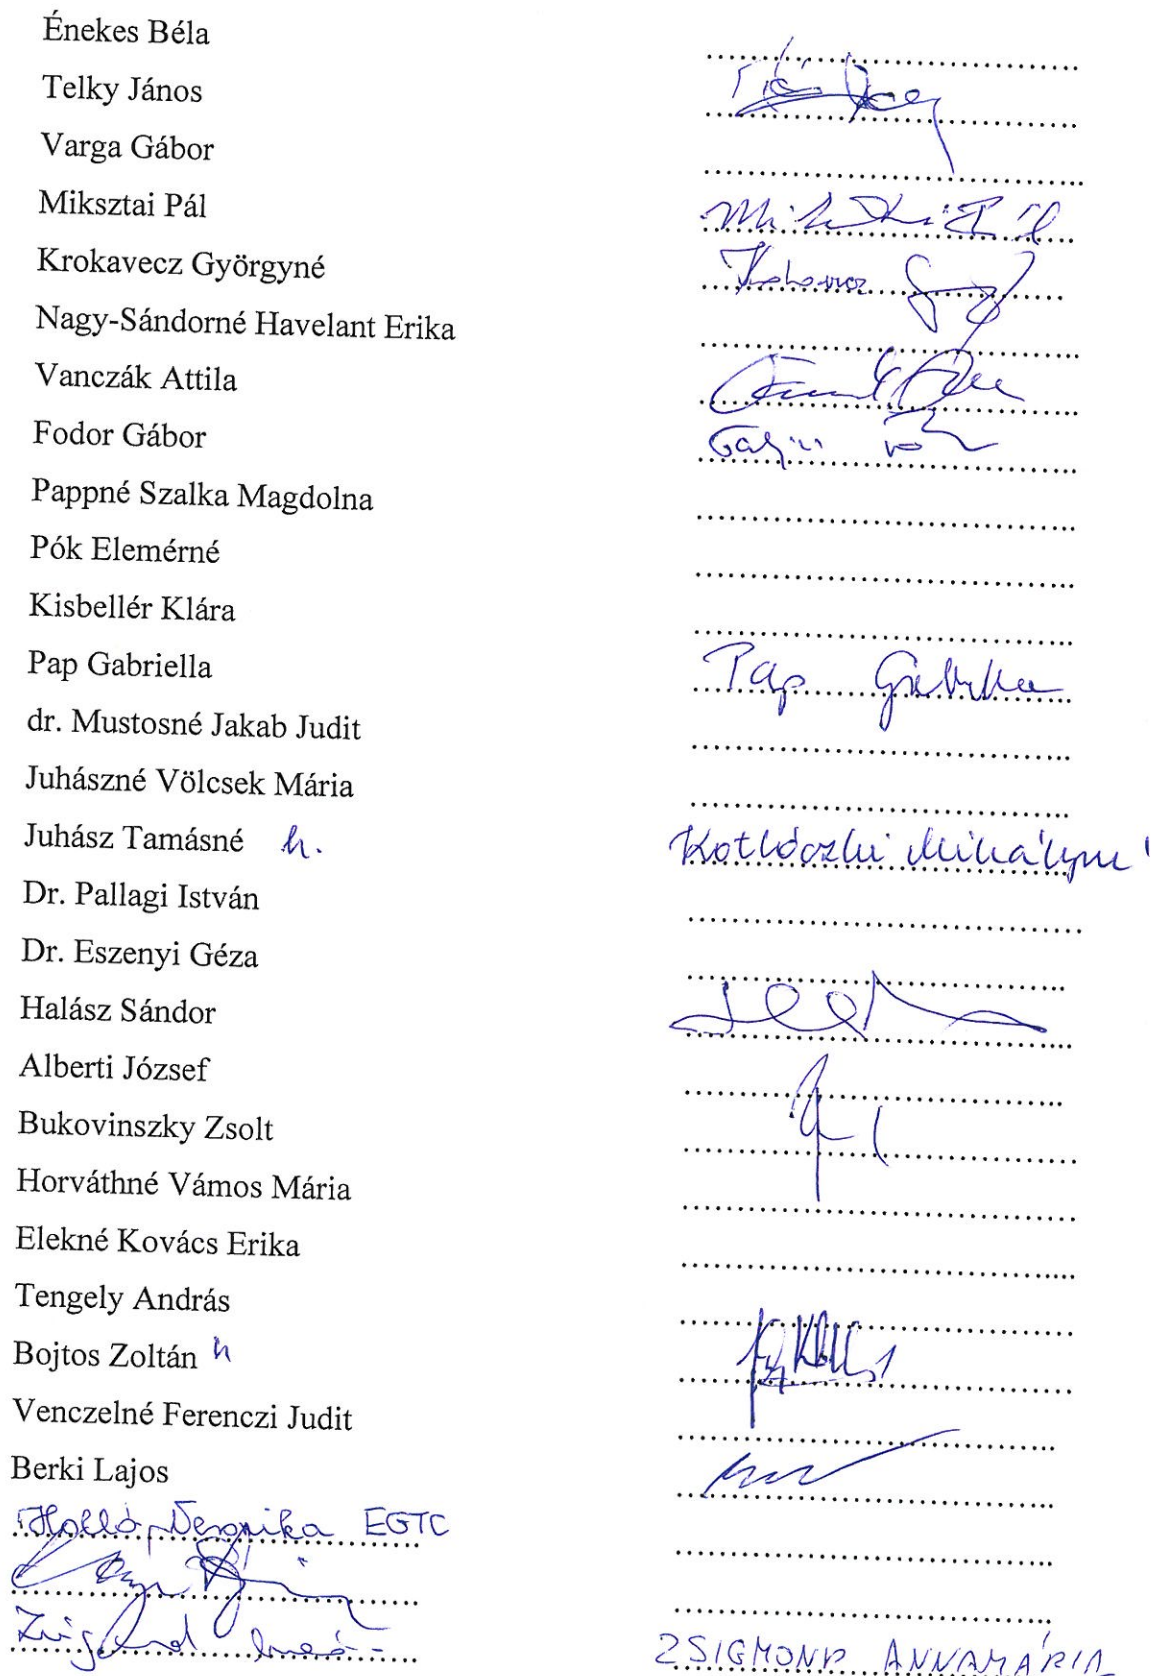 Énekes Béla
Telky János
Varga Gábor
Miksztai Pál
Krokavecz Györgyné
Nagy-Sándorné Havelant Erika
Vanczák Attila
Fodor Gábor
Pappné Szalka Magdolna
Pók Elemérné
Kisbellér Klára
Pap Gabriella Pap
dr. Mustosné Jakab Judit
Juhászné Völcsek Mária
Juhász Tamásné h. Kotlóczki Mihályné
Dr. Pallagi István
Dr. Eszenyi Géza
Halász Sándor
Alberti József
Bukovinszky Zsolt
Horváthné Vámos Mária
Elekné Kovács Erika
Tengely András
Bojtos Zoltán h
Venczelné Ferenczi Judit
Berki Lajos
Holló Veronika EGTC
ZSIGMOND ANNAMÁRIA